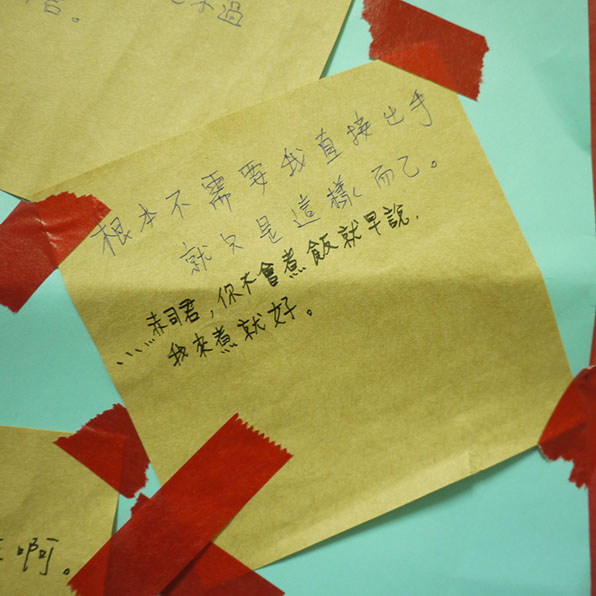 過
根本不需要我直接出手
就只是這樣而已。
......赤司君,你不會煮飯就早說,
我來煮就好。
啊。